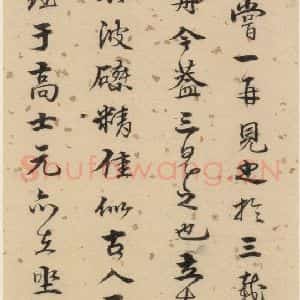 嘗一再見之於三載
今蓋三見之也
波磔精佳似古人
于高士元亦在坐
Shufawang.CN